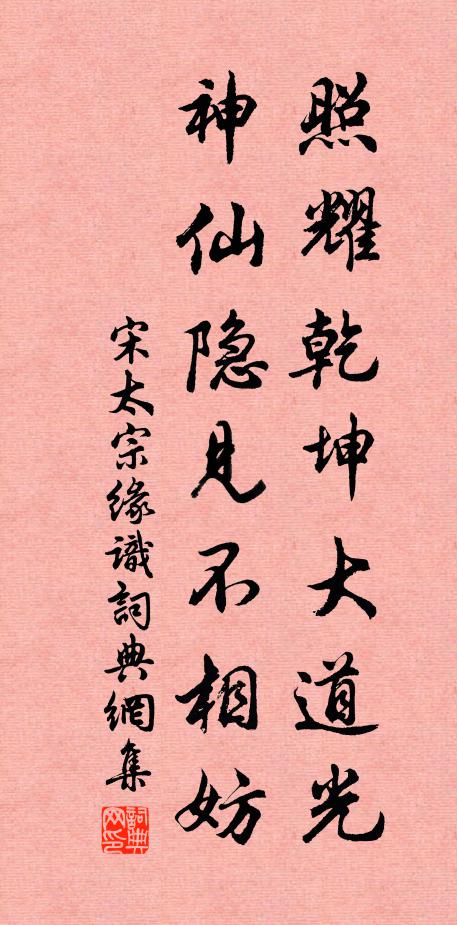 照耀乾坤大道光
神仙隐见不相妨
宋太宗缘識詞典網集
詞典网印